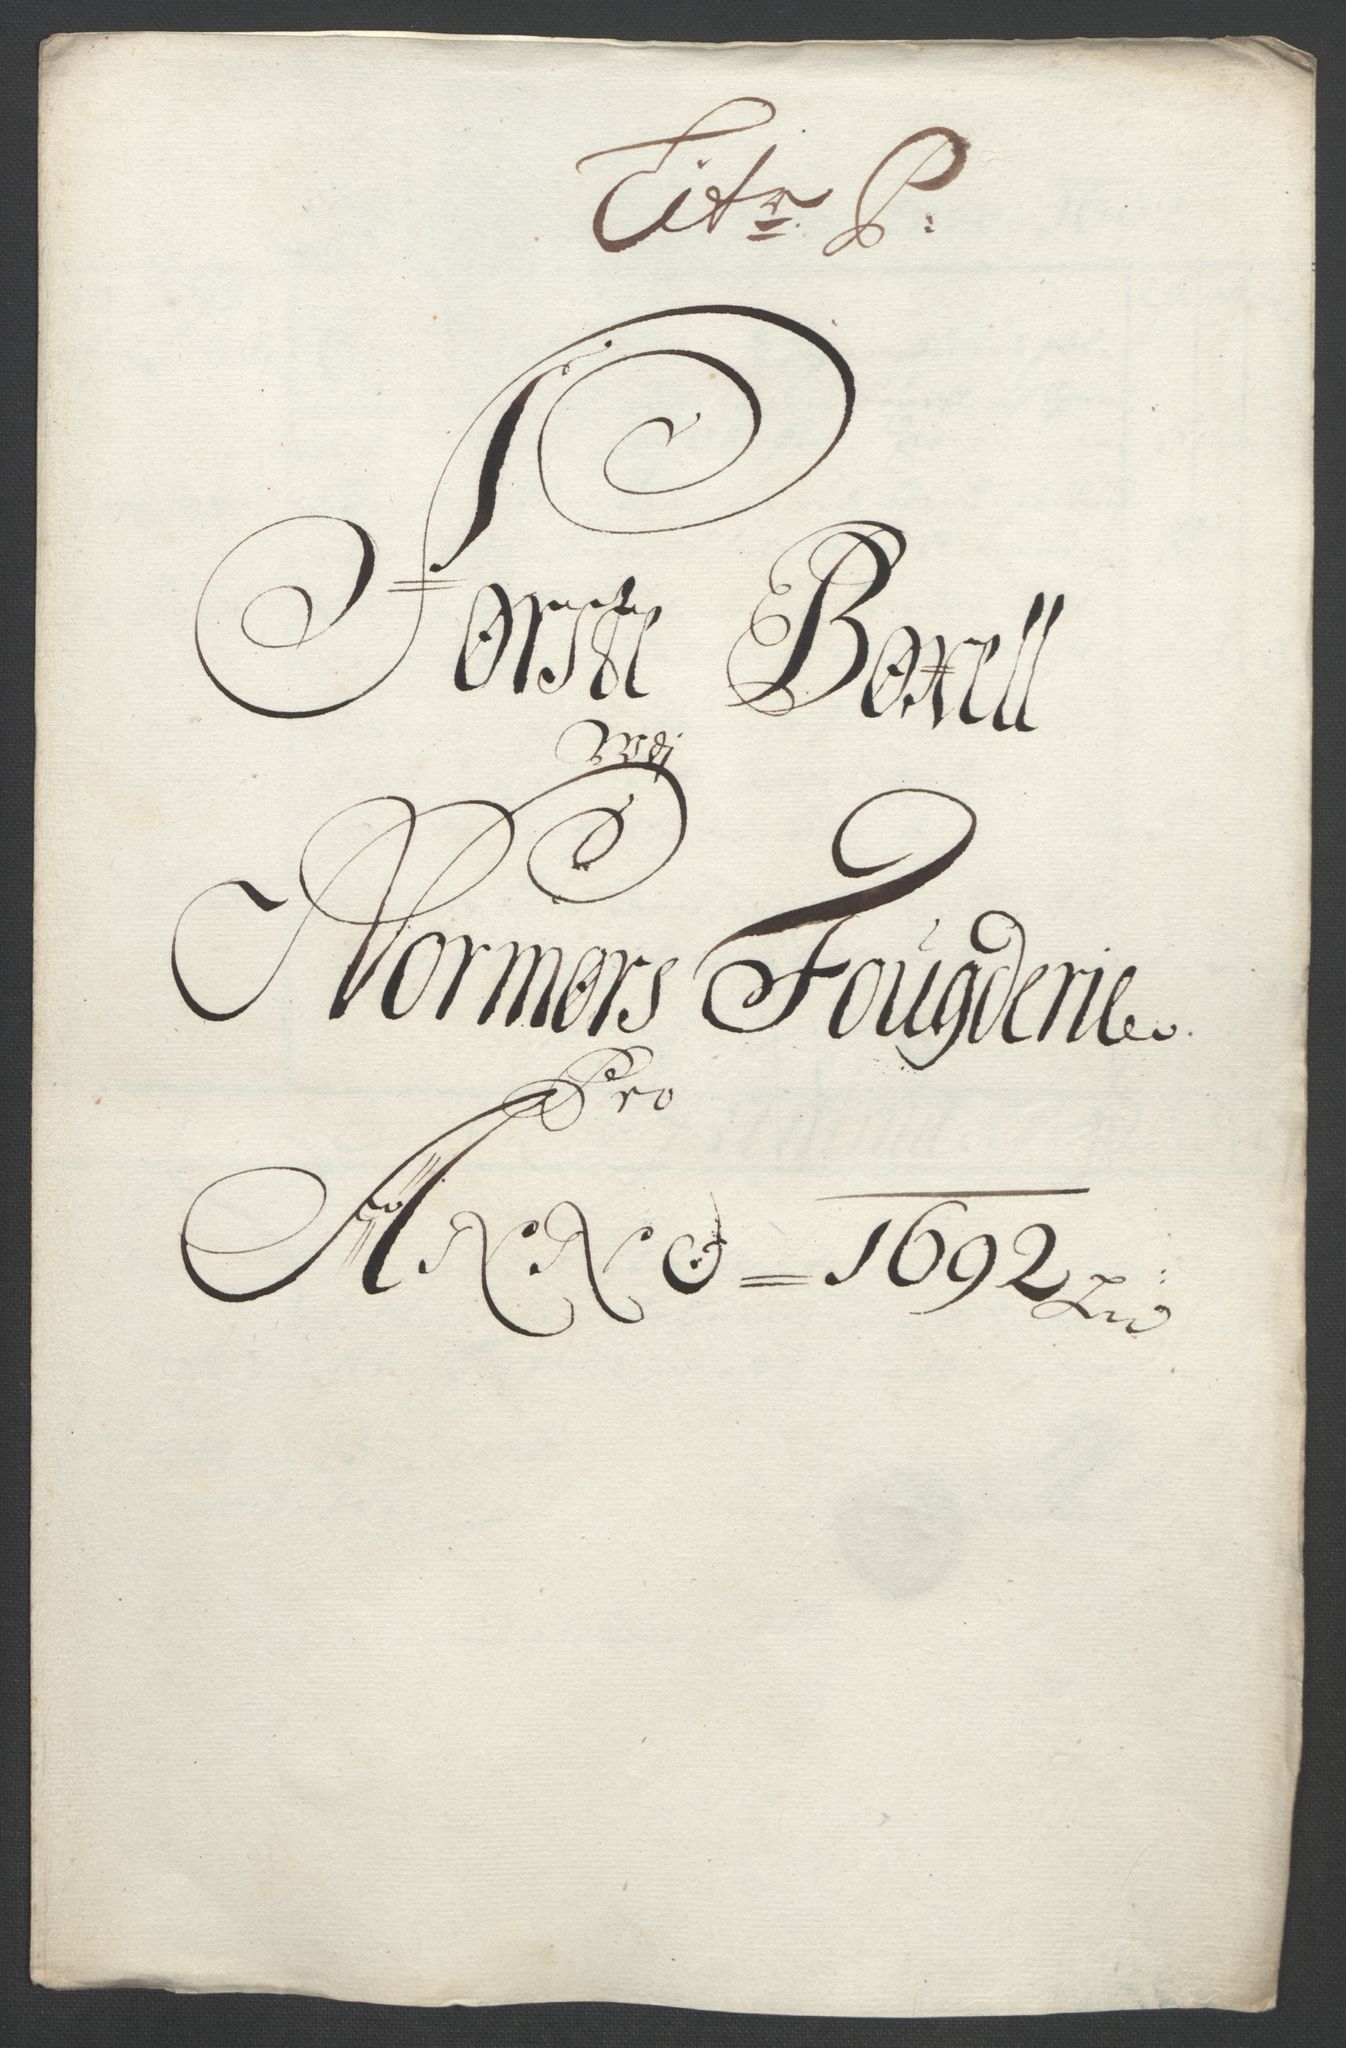 Litr P:
Første Boxell
wdj
Normørs Fougderie
Pro
ANNO = 1692